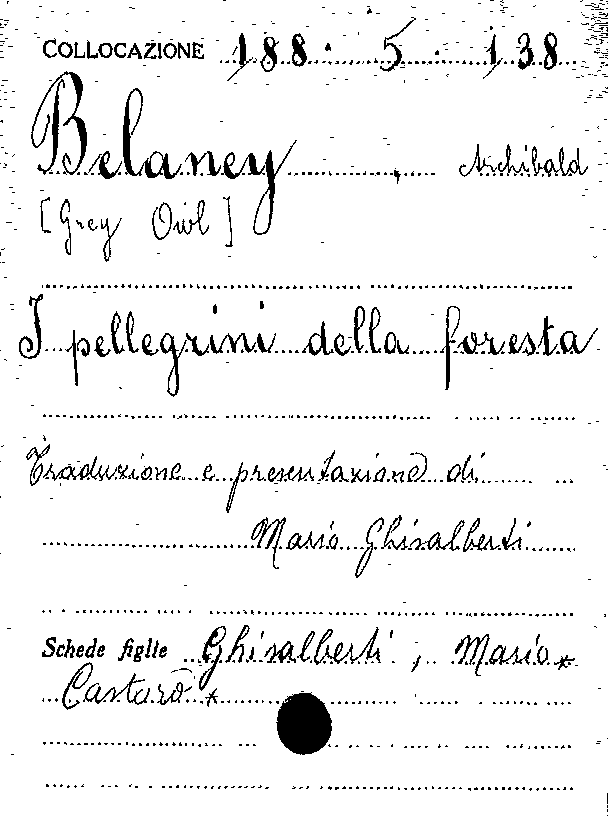 COLLOCAZIONE 188. 5. 138
Belaney, Archibald
[Grey Owl]
I pellegrini della foresta
Traduzione e presentazione di
Mario Ghisalberti
Schede figlie Ghisalberti, Mario*
Castoro *